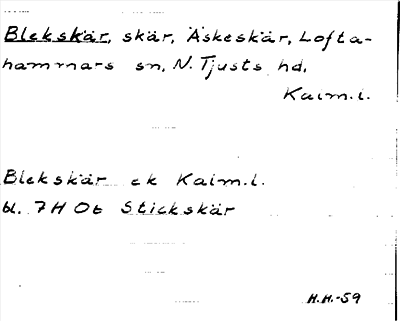 Blekskär, skär, Äskeskär, Lofta-
hammars sn, N. Tjusts hd,
Kalm.l.
Blekskär ek Kalm.l.
bl. 7H Ob Stickskär
H.H.-59